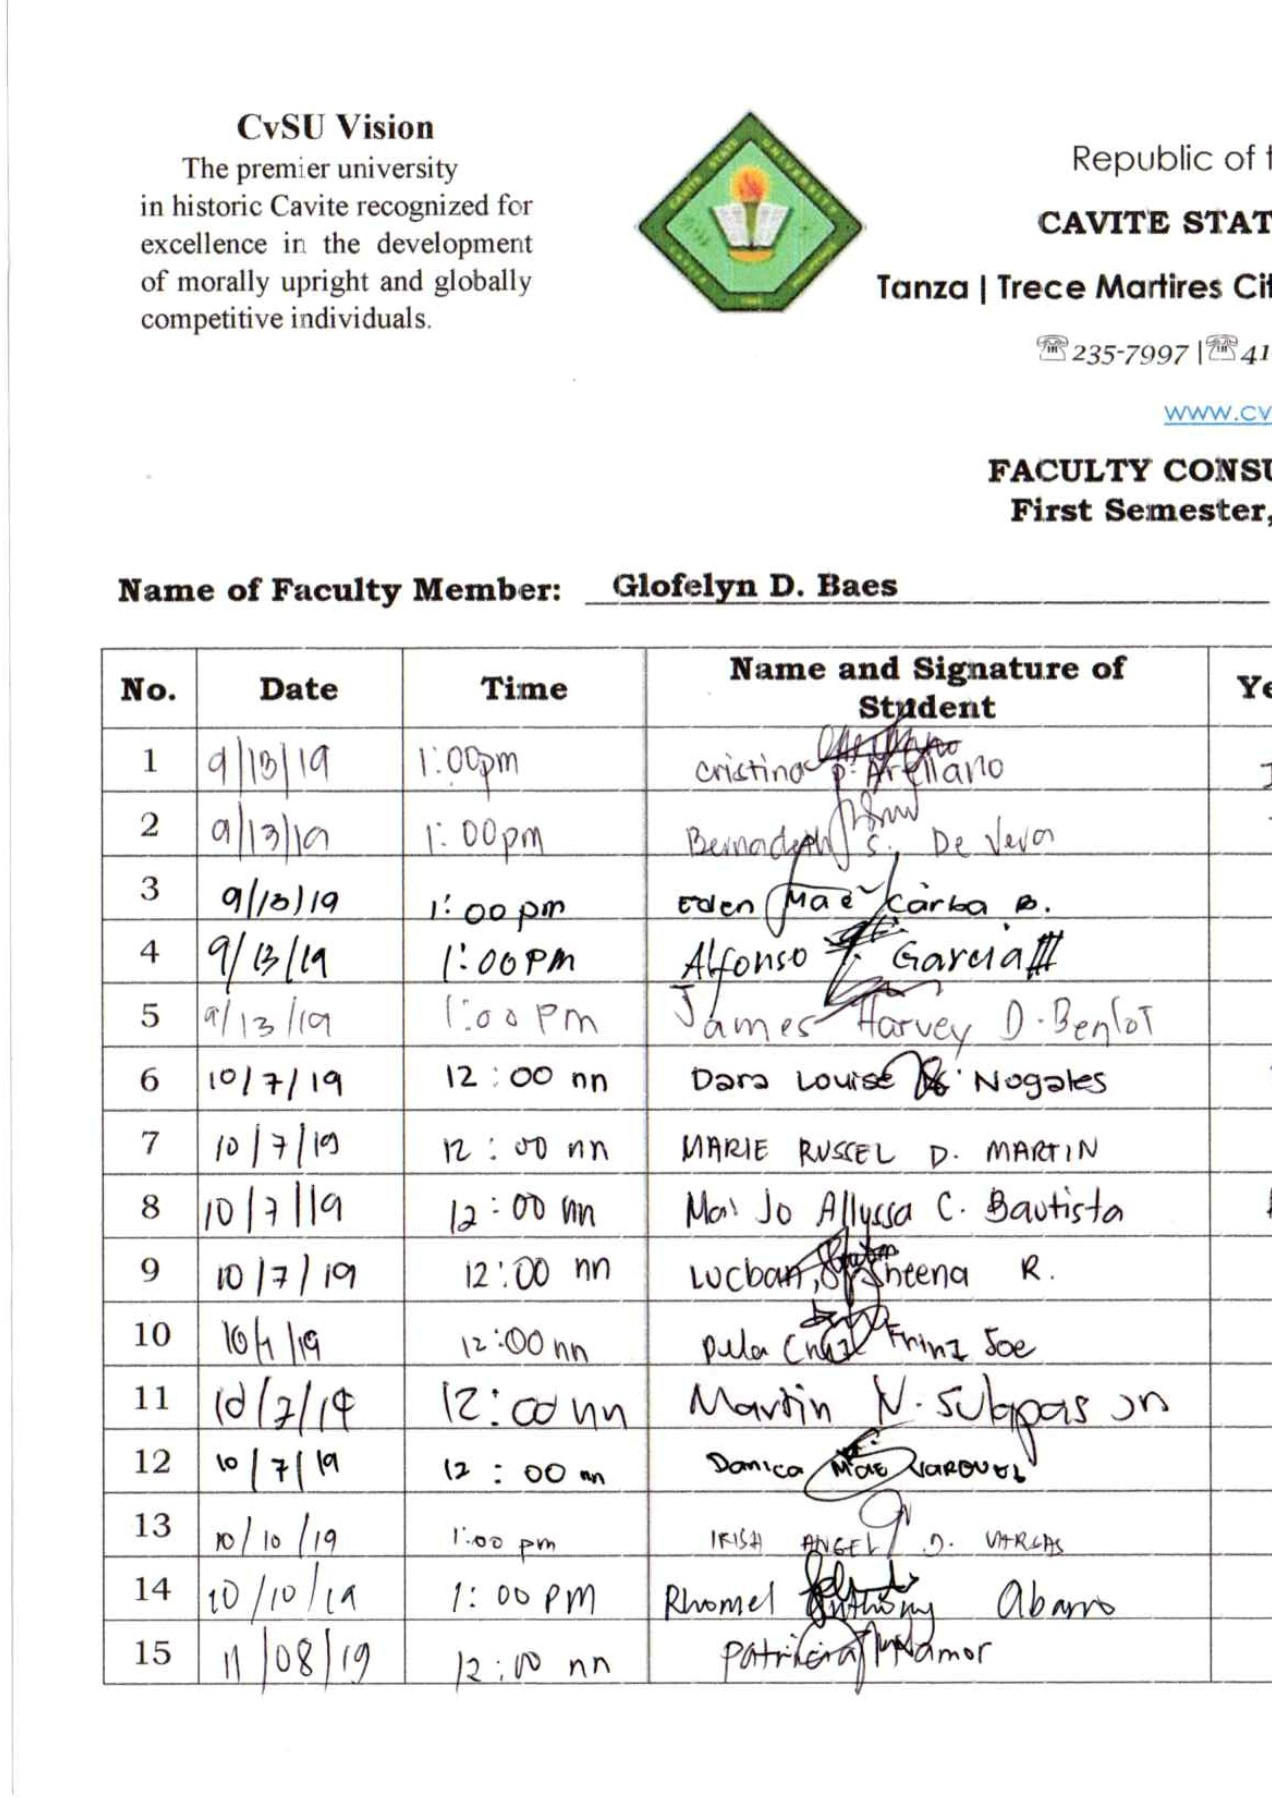 CvSU Vision
The premier university
in historic Cavite recognized for
excellence in the development
of morally upright and globally
competitive individuals.
CAVITE STATE UNIVERSITY
Republic of t
CAVITE STAT
Tanza | Trece Martires Cit
☏235-7997 |☏41
www.cv
FACULTY CONSU
First Semester,
Name of Faculty Member: Glofelyn D. Baes
No. Date Time Name and Signature of Student Ye
1 9/13/19 1:00pm Cristina P. Arellano
2 9/13/19 1:00pm S. De Vera
3 9/13/19 1:00pm Eden Mae Carba B.
4 9/13/19 1:00PM Alfonso Garcia III
5 9/13/19 1:00 PM James Harvey D. Benlot
6 10/7/19 12:00 nn Dara Louise Nogales
7 10/7/19 12:00 nn MARIE RUSSEL D. MARTIN
8 10/7/19 12:00 nn Jo Allyssa C. Bautista
9 10/7/19 12:00 nn Lucban, Sheena R.
10 10/7/19 12:00 nn Dela Cruz Joe
11 10/7/19 12:00 nn Martin N.
12 10/7/19 12:00 nn Danica Mae
13 10/10/19 1:00 pm IRISH ANGEL D. VARGAS
14 10/10/19 1:00 PM Rhomel Anthony
15 11/08/19 12:00 nn Patricia